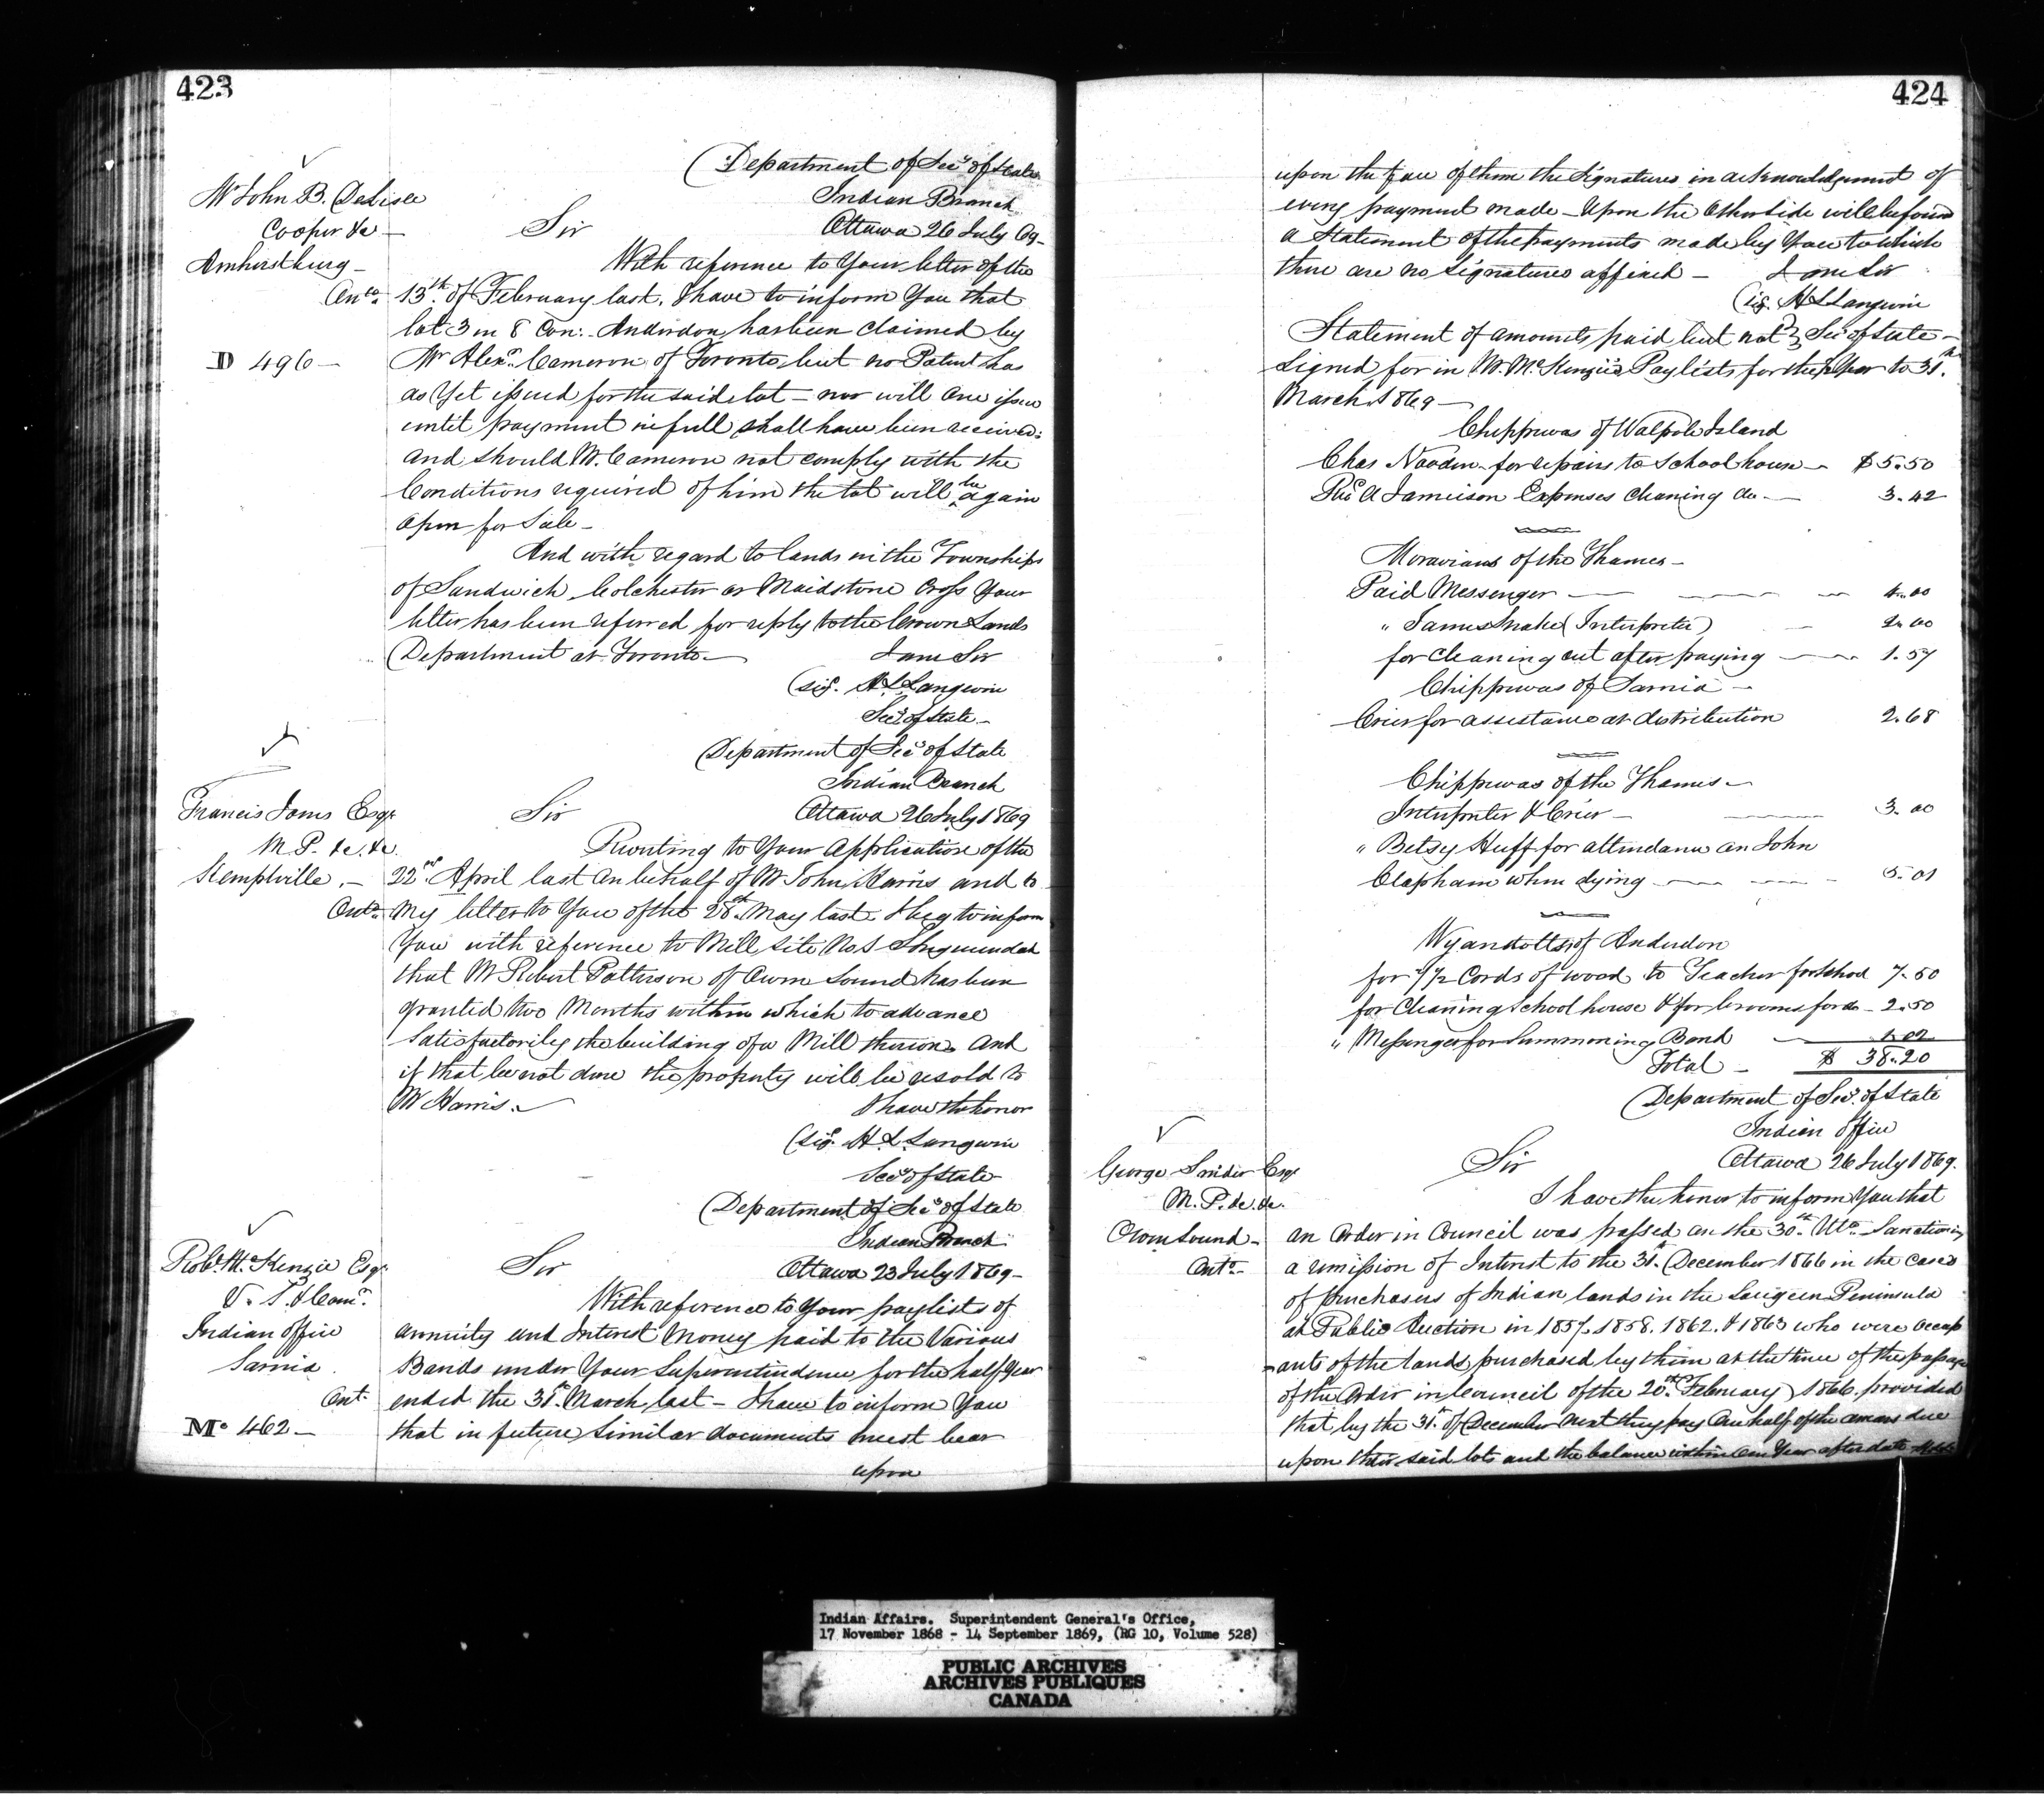 423
Department of Secy of State
Indian Branch
Ottawa 26 July 69
Mr John B. DeLisle
Cooper &c
Amherstburg
Onto.
Sir
With reference to Your letter of the
13th of February last, I have to inform You that
lot 3 in 8 Con: Anderdon has been claimed by
D 496
Mr Alexr Cameron of Toronto, but no Patent has
as Yet issued for the said lot – nor will one issue
until payment in full shall have been received:
and should Mr. Cameron not comply with the
Conditions required of him the lot will be again
open for Sale –
And with regard to lands in the Townships
of Sandwich, Colchester or Maidstone Cross Your
letter has been referred for reply to the Crown Lands
Department at Toronto – I am Sir
(sigd. H L Langevin
Secy of State –
Department of Secy of State
Indian Branch
Ottawa 26 July 1869
Francis Jones Esqr
M.P. &c. &c.
Kemptville. –
Onto.
Sir
Reverting to Your application of the
22nd. April last on behalf of Mr John Harris and to
My letter to You of the 28th. May last. I beg to inform
You with reference to Mill site No. 1
that Mr Robert Patterson of Owen Sound has been
granted two Months within which to advance
Satisfactorily the building of a Mill thereon. And
if that be not done the property will be resold to
Mr Harris. – I have the honor
(sigd. H. L. Langevin
Secy of State
Department of Secy of State
Indian Branch
Ottawa 23 July 1869 –
Robt. McKenzie Esqr
V. S. & Comr.
Indian Office
Sarnia
Ont.
Mc 462 –
Sir
With reference to Your paylists of
annuity and Interest Money paid to the Various
Bands under Your Superintendence for the half Year
ended the 31st. March last – I have to inform You
that in future similar documents must bear
upon
424
upon the face of them the Signatures in acknowledgement of
every payment made – Upon the other side will be found
a Statement of the payments made by You to which
there are no signatures affixed – I am Sir
(sig. H L Langevin
Secy of State –
Statement of amounts paid but not
signed for in Mr. McKenzie's Paylists for the ½ Year to 31st.
March 1869 –
Chippewas of Walpole Island
Chas Naoden – for repairs to School house – $5.50
Revd A Jamieson Expenses cleaning do – 3.42
Moravians of the Thames –
Paid Messenger – 4.00
" James Snake (Interpreter) – 2.00
for cleaning out after paying – 1.57
Chippewas of Sarnia –
Crier for assistance at distribution 2.68
Chippewas of the Thames –
Interpreter & Crier – 3.00
" Betsy Huff for attendance on John
Clapham when dying – 5.01
Wyandotts of Anderdon
for 7½ Cords of wood to Teacher for School 7.50
for Cleaning School house & for brooms for do – 2.50
" Messenger for Summoning Band – 1.02
Total – $ 38.20
Department of Secy. of State
Indian Office
Ottawa 26 July 1869.
George Snider Esqr
M.P. &c. &c.
Owen Sound –
Onto. –
Sir
I have the honor to inform You that
an Order in Council was passed on the 30th. Ulto. Sanctioning
a remission of Interest to the 31st. December 1866 in the cases
of purchasers of Indian lands in the Saugeen Peninsula
at Public Auction in 1857. 1858. 1862. & 1863 who were occup
-ants of the lands purchased by them at the time of the passage
of the Order in Council of the 20th. February 1866. provided
that, by the 31st. of December next they pay One half of the arrears due
upon their said lots and the balance within One Year after date
Indian Affairs. Superintendent General's Office,
17 November 1868 - 14 September 1869, (RG 10, Volume 528)
PUBLIC ARCHIVES
ARCHIVES PUBLIQUES
CANADA